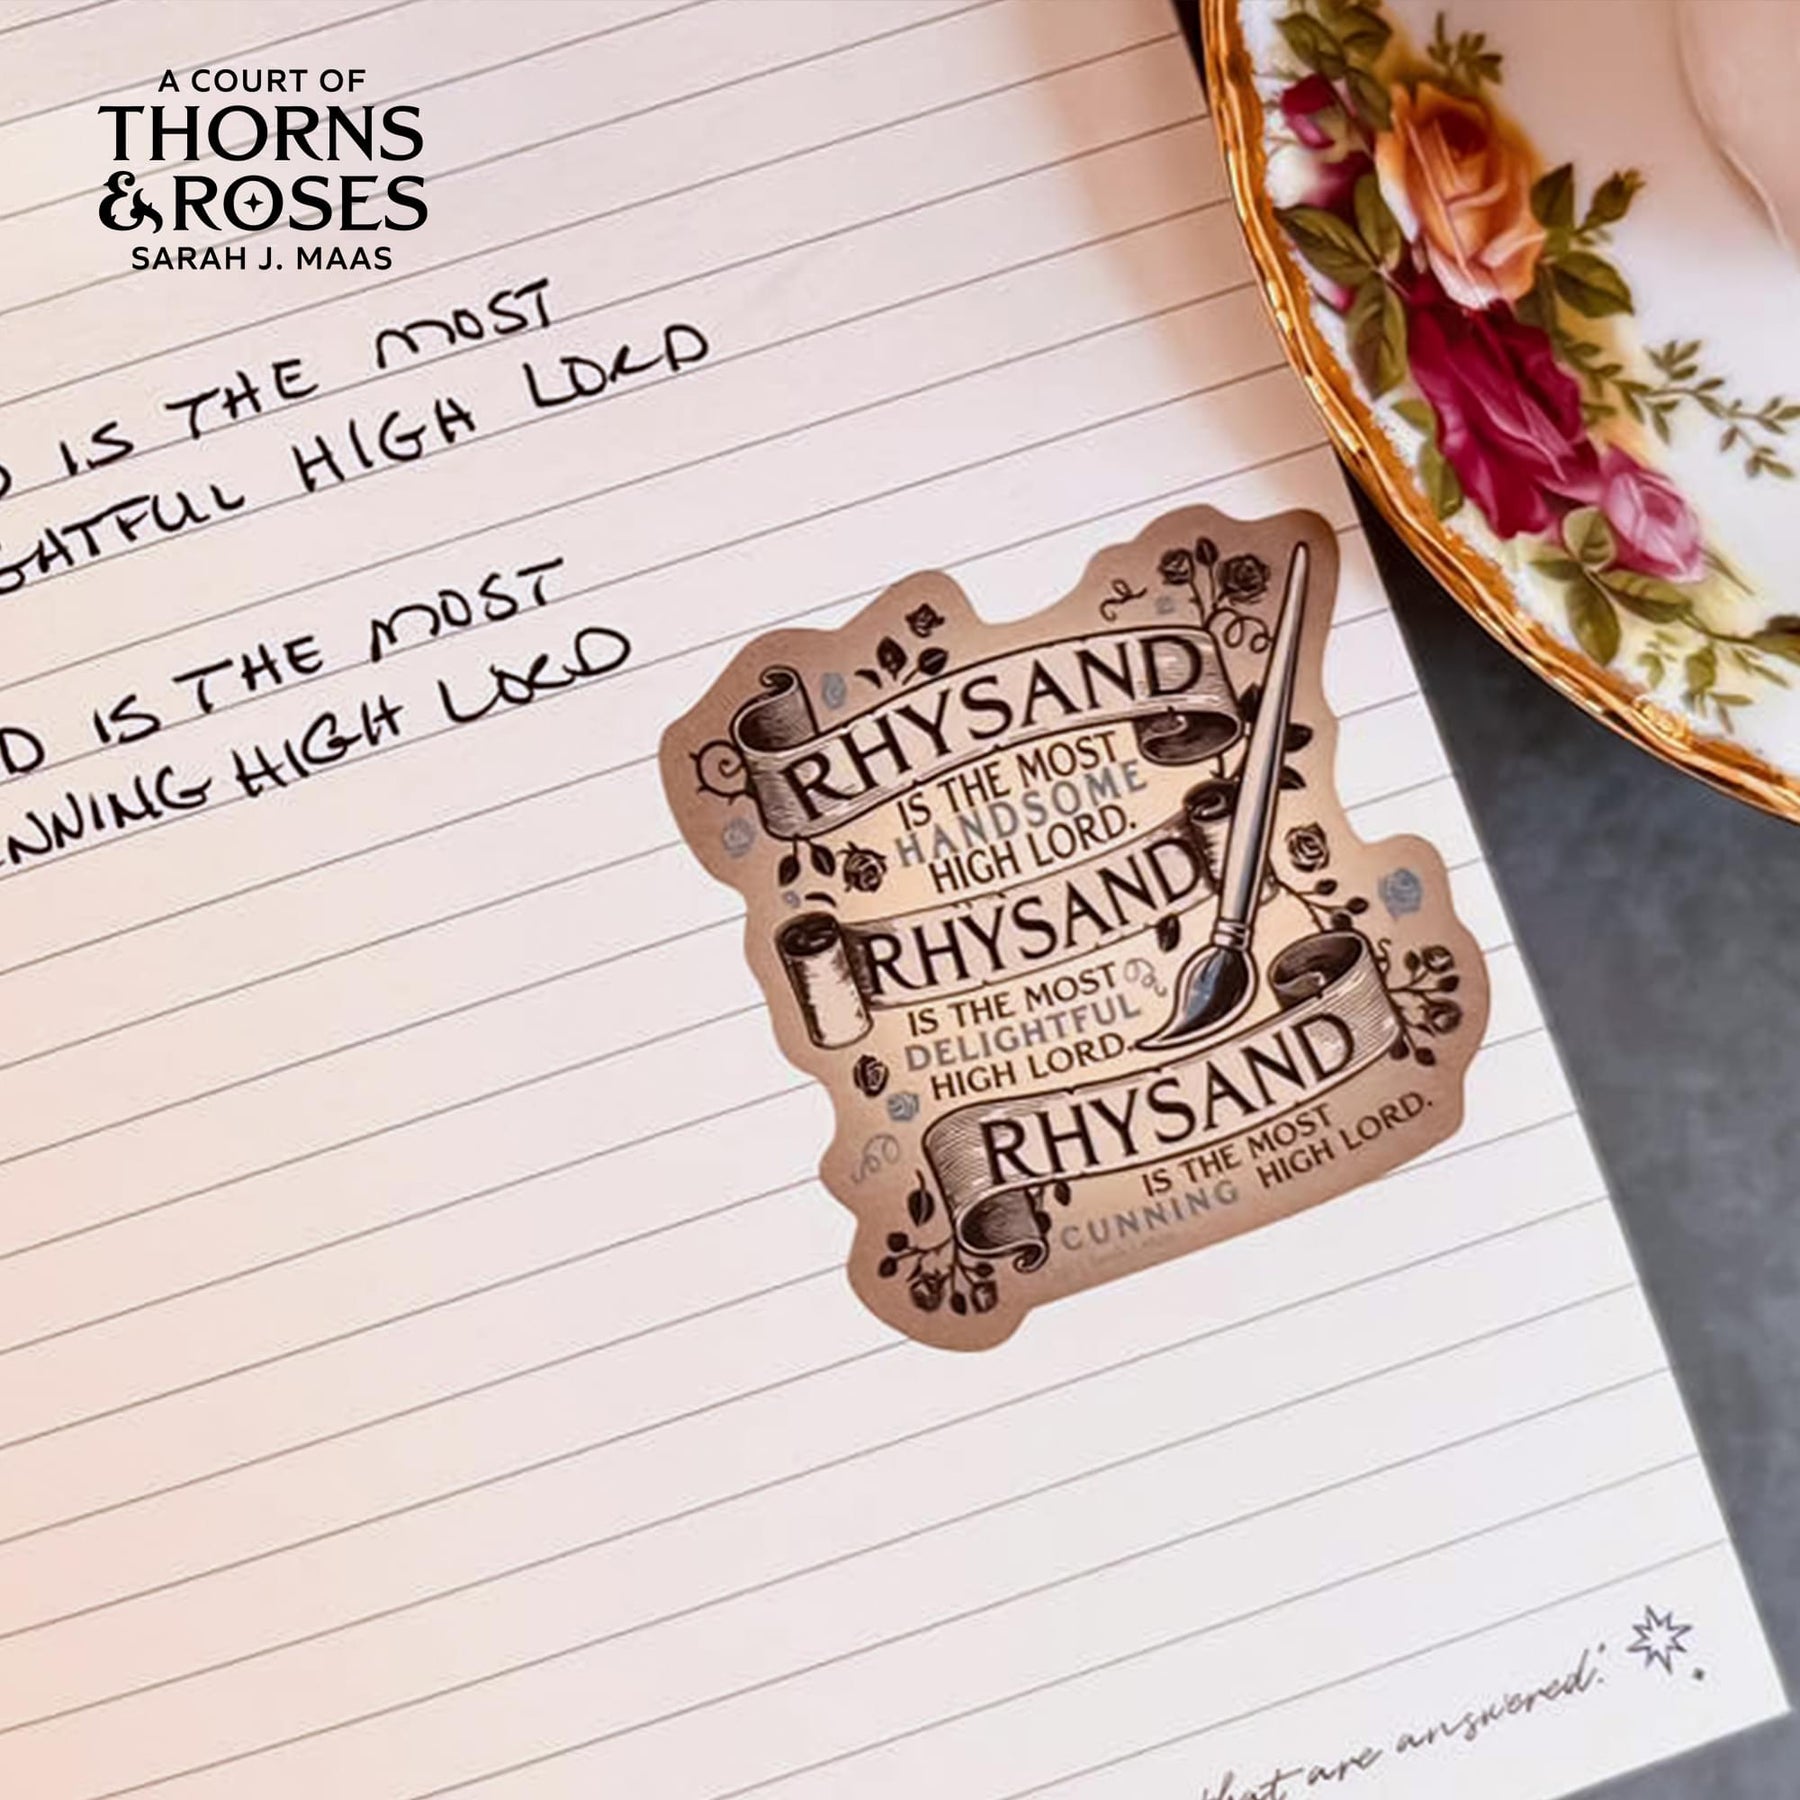 A COURT OF
THORNS
& ROSES
SARAH J. MAAS
IS THE MOST
HIGH LORD
IS THE MOST
HIGH LORD
RHYSAND
IS THE MOST
HANDSOME
HIGH LORD.
RHYSAND
IS THE MOST
DELIGHTFUL
HIGH LORD.
RHYSAND
IS THE MOST
CUNNING HIGH LORD.
that are answered."